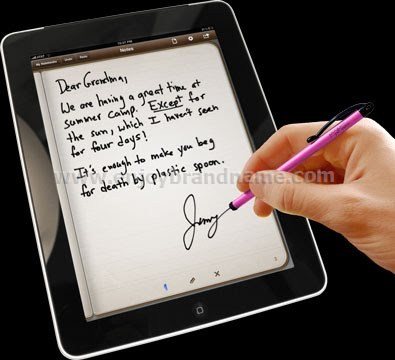 Notes
Dear Grandma,
We are having a great time at
summer camp. Except for
the sun, which I haven't seen
for four days!
It's enough to make you beg
for death by plastic spoon.
www.enjoybrandname.com
Jenny